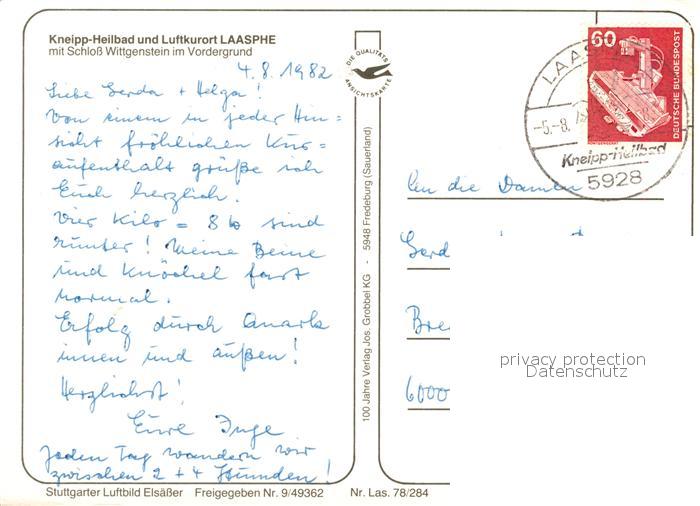 Kneipp-Heilbad und Luftkurort LAASPHE
mit Schloß Wittgenstein im Vordergrund
4.8.1982
Liebe Gerda + Helga!
Von einem in jeder Hin=
sicht fröhlichen Kur=
aufenthalt grüße ich
Euch herzlich.
Vier Kilo = 8 ℔ sind
runter! Meine Beine
und Knöchel fast
normal.
Erfolg durch Quark
innen und außen!
Herzlichst!
Eure Inge
Jeden Tag wandern wir
zwischen 2 + 4 Stunden!
Stuttgarter Luftbild Elsäßer Freigegeben Nr. 9/49362 Nr. Las. 78/284
100 Jahre Verlag Jos. Grobbel KG - 5948 Fredeburg (Sauerland)
DIE QUALITÄTS
ANSICHTSKARTE
60
DEUTSCHE BUNDESPOST
LAAS
-5.-8.
Kneipp-Heilbad
5928
An die Damen
Gerd
Bre
6000
privacy protection
Datenschutz